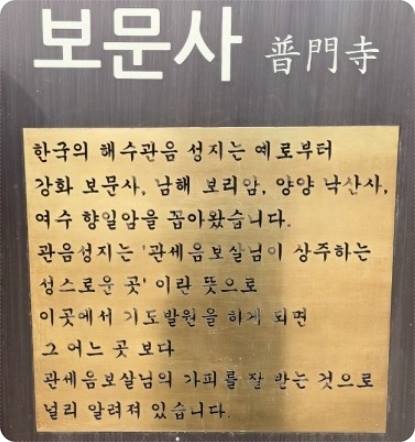 보문사 普門寺
한국의 해수관음 성지는 예로부터
강화 보문사, 남해 보리암, 양양 낙산사,
여수 향일암을 꼽아왔습니다.
관음성지는 '관세음보살님이 상주하는
성스러운 곳' 이란 뜻으로
이곳에서 기도발원을 하게 되면
그 어느 곳 보다
관세음보살님의 가피를 잘 받는 것으로
널리 알려져 있습니다.